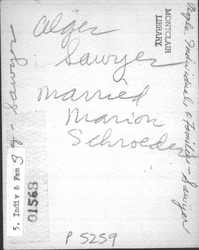 Alger
Sawyer
married
Marion
Schroeder
P 5259
MONTCLAIR
LIBRARY
People, Individuals & Families - Sawyer
5. Indiv & Fam S
01568